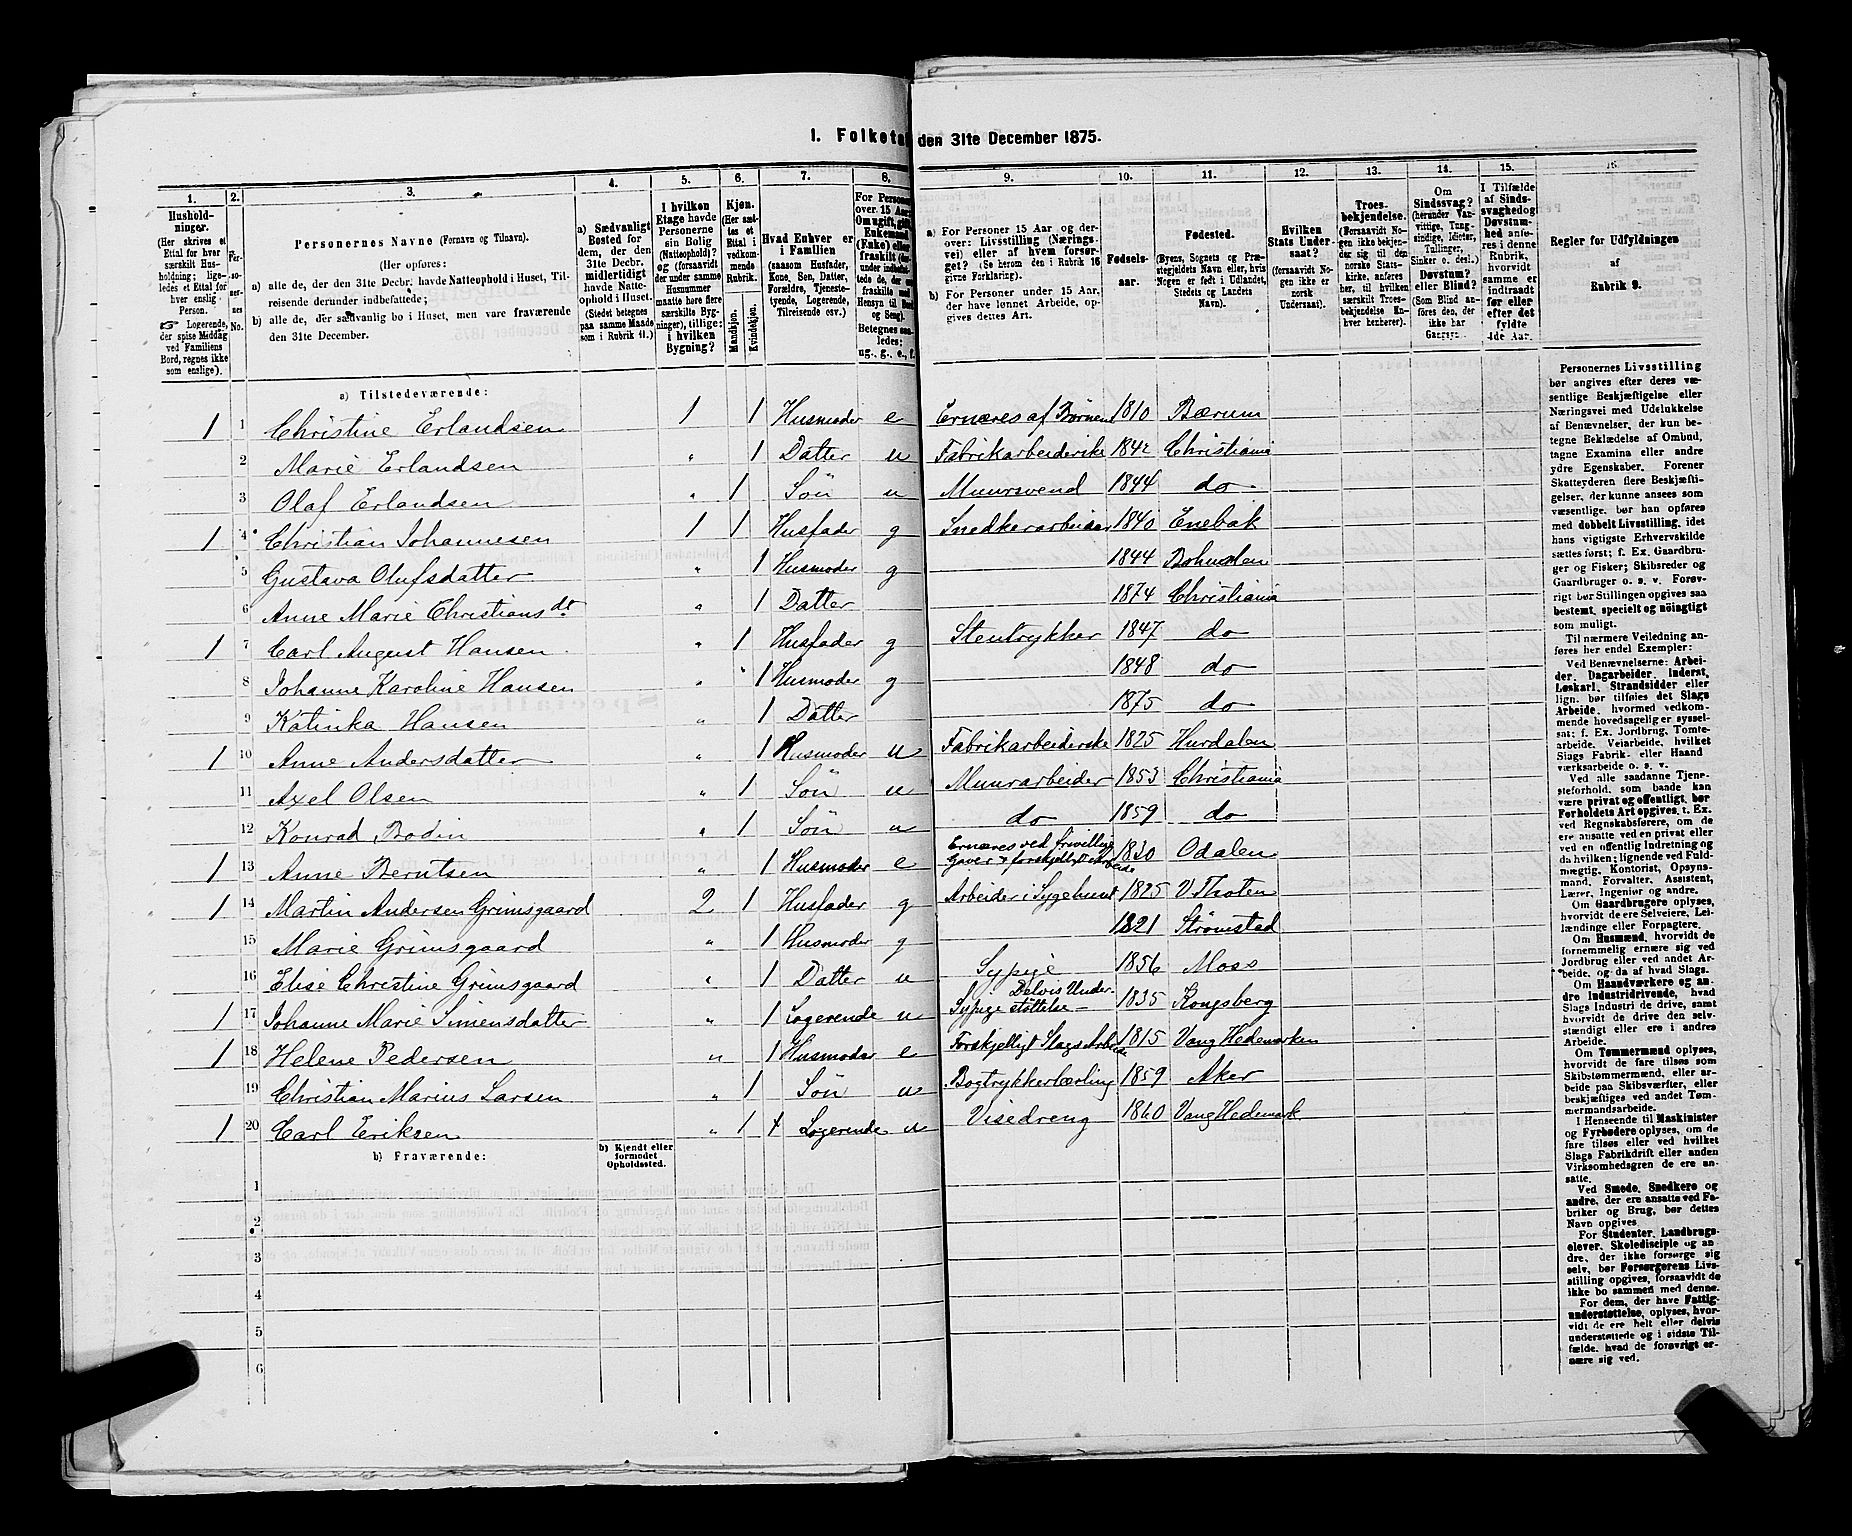 I. Folketal den 31te December 1875.
1. 2. 3. 4. 5. 6. 7. 8. 9. 10. 11. 12. 13. 14. 15. 16.
Husholdninger.
(Her skrives et Ettal for hver særskilt Husholdning; ligeledes et Ettal for hver enslig Person.
☞ Logerende, der spise Middag ved Familiens Bord, regnes ikke som enslige).
Personernes No.
Personernes Navne (Fornavn og Tilnavn).
(Her opføres:
a) alle de, der den 31te Decbr. havde Natteophold i Huset, Tilreisende derunder indbefattede;
b) alle de, der sædvanlig bo i Huset, men vare fraværende den 31te December.
a) Sædvanligt Bosted for dem, der den 31te Decbr. midlertidigt havde Natteophold i Huset. (Stedet betegnes paa samme Maade som i Rubrik 11.)
I hvilken Etage havde Personerne sin Bolig (Natteophold)? og (forsaavidt der under samme Husnummer maatte høre flere særskilte Bygninger), tillige: i hvilken Bygning?
Kjøn. (Her sættes et Ettal i vedkommende Rubrik.
Mandkjøn. Kvindekjøn.
Hvad Enhver er i Familien
(saasom Husfader, Kone, Søn, Datter, Forældre, Tjenestetyende, Logerende, Tilreisende osv.)
a) For Personer 15 Aar og derover: Livsstilling (Næringsvei) eller af hvem forsørget? (Se herom den i Rubrik 16 givne Forklaring).
b) For Personer under 15 Aar, der have lønnet Arbeide, opgives dettes Art.
Fødselsaar.
Fødested.
(Byens, Sognets og Præstegjeldets Navn eller, hvis Nogen er født i Udlandet, Stedets og Landets Navn).
Hvilken Stats Undersaat?
(forsaavidt Nogen ikke er norsk Undersaat).
Troesbekjendelse.
(Forsaavidt Nogen ikke bekjender sig til den norske Statskirke, anføres her, til hvilken særskilt Troesbekjendelse Enhver henhører).
Om Sindssvag?
(herunder Vanvittige, Tungsindige, Idioter, Tullinger, Sinker o. desl.)
Døvstum? eller Blind?
(Som Blind anføres den, der ikke har Gangsyn.
I Tilfælde af Sindssvaghed og Døvstumhed anføres i denne Rubrik, hvorvidt samme er indtraadt før eller efter det fyldte 4de Aar.
Regler for Udfyldningen
af
Rubrik 9.
a) Tilstedeværende:
1 1 Christine Erlandsen 1 1 Husmoder e Ernæres af Børnene 1810 Bærum
2 Marie Erlandsen " 1 Datter u Fabrikarbeiderske 1842 Christiania
3 Olaf Erlandsen " 1 Søn u Muursvend 1844 do
1 4 Christian Johannesen 1 1 Husfader g Snedkerarbeider 1840 Enebak
5 Gustava Olufsdatter " 1 Husmoder g 1844
6 Anne Marie Christiansdt " 1 Datter 1874 Christiania
1 7 Carl August Hansen " 1 Husfader g Stentrykker 1847 do
8 Johanne Karoline Hansen " 1 Husmoder g 1848 do
9 Katinka Hansen " 1 Datter 1875 do
1 10 Anne Andersdatter " 1 Husmoder u Fabrikarbeiderske 1825 Hurdalen
11 Axel Olsen " 1 Søn u Muurarbeider 1853 Christiania
12 Konrad Bodin " 1 Søn u do 1859 do
1 13 Anne Berntsen " 1 Husmoder e Ernæres ved frivillige Gaver & forskjelligt Arbeide 1830 Odalen
1 14 Martin Andersen Grimsgaard 2 1 Husfader g Arbeider i Sygehuset 1825 V. Thoten
15 Marie Grimsgaard " 1 Husmoder g 1821 Strømstad
16 Elise Christine Grimsgaard " 1 Datter u Sypige 1856 Moss
1 17 Johanne Marie Simensdatter " 1 Logerende u Sypige Delvis Understøttelse 1835 Kongsberg
1 18 Helene Pedersen " 1 Husmoder e Forskjelligt Slags Arbeide 1815 Vang Hedemarken
19 Christian Marius Larsen " 1 Søn u Bogtrykkerlærling 1859 Aker
1 20 Carl Eriksen " 1 Logerende u Visedreng 1860 Vang Hedemark
b) Fraværende:
b) Kjendt eller formodet Opholdssted.
1
2
3
4
5
6
Personernes Livsstilling
bør angives efter deres væsentlige Beskjæftigelse eller
Næringsvei med Udelukkelse
af Benævnelser, der kun betegne Beklædelse af Ombud,
tagne Examina eller andre
ydre Egenskaber. Forener
Skatteyderen flere Beskjæftigelser, der kunne ansees som
væsentlige, bør han opføres
med dobbelt Livsstilling, idet
hans vigtigste Erhvervskilde
sættes først; f. Ex. Gaardbruger og Fisker; Skibsreder og
Gaardbruger o. s. v. Forøvrigt bør Stillingen opgives saa
bestemt, specielt og nöiagtigt
som muligt.
Til nærmere Veiledning anføres her endel Exempler:
Ved Benævnelserne: Arbeider, Dagarbeider, Inderst,
Løskarl, Strandsidder eller
lign. bør tilføies det Slags
Arbeide, hvormed vedkommende hovedsagelig er sysselsat; f. Ex. Jordbrug, Tomtearbeide, Veiarbeide, hvilket
Slags Fabrik- eller Haandværksarbeide o. s. v.
Ved alle saadanne Tjenesteforhold, som baade kan
være privat og offentligt, bør
Forholdets Art opgives, t. Ex.
ved Regnskabsførere, om de
ere ansatte ved en privat eller
ved en offentlig Indretning og
da hvilken; lignende ved Fuldmægtig, Kontorist, Opsynsmand, Forvalter, Assistent,
Lærer, Ingeniør og andre.
Om Gaardbrugere oplyses,
hvorvidt de ere Selveiere, Leilændinge eller Forpagtere.
Om Husmænd, hvorvidt de
fornemmelig ernære sig ved
Jordbrug eller ved andet Arbeide, og da af hvad Slags.
Om Haandværkere og andre Industridrivende, hvad
Slags Industri de drive, samt
hvorvidt de drive den selvstændigt eller ere i andres
Arbeide.
Om Tømmermænd oplyses,
hvorvidt de fare tilsøs som
Skibstømmermænd, eller arbeide paa Skibsværfter, eller
beskjæftiges ved andet Tømmermandsarbeide.
I Henseende til Maskinister
og Fyrbødere oplyses, om de
fare tilsøs eller ved hvilket
Slags Fabrikdrift eller anden
Virksomhedsgren de ere ansatte.
Ved Smede, Snedkere og
andre, der ere ansatte ved Fabriker og Brug, bør dettes
Navn opgives.
For Studenter, Landbrugselever, Skoledisciple og andre, der ikke forsørge sig
selv, bør Forsørgerens Livsstilling opgives, forsaavidt de
ikke bo sammen med denne.
For dem, der have Fattigunderstøttelse, oplyses, hvorvidt de ere helt eller delvis
understøttede og i sidste Tilfælde, hvad de forøvrigt ernære sig ved.